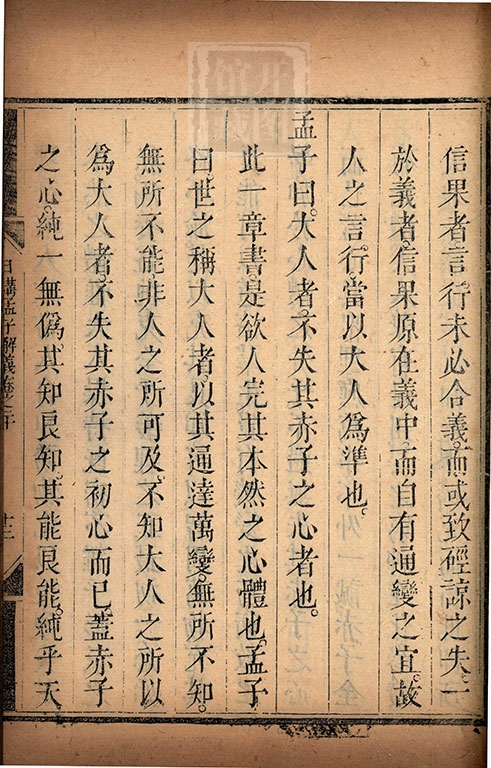 信果者言。行未必合義。而或致硜諒之失。一
於義者。信果原在義中。而自有通變之宜。故
人之言。行當以大人為準也。
孟子曰。大人者。不失其赤子之心者也。
此一章書。是欲人完其本然之心體也。孟子
曰。世之稱大人者。以其通達萬變。無所不知。
無所不能。非人之所可及。不知大人之所以
為大人者。不失其赤子之初心而已。蓋赤子
之心。純一無偽。其知良知。其能良能。純乎天
日講孟子解義卷之
十三